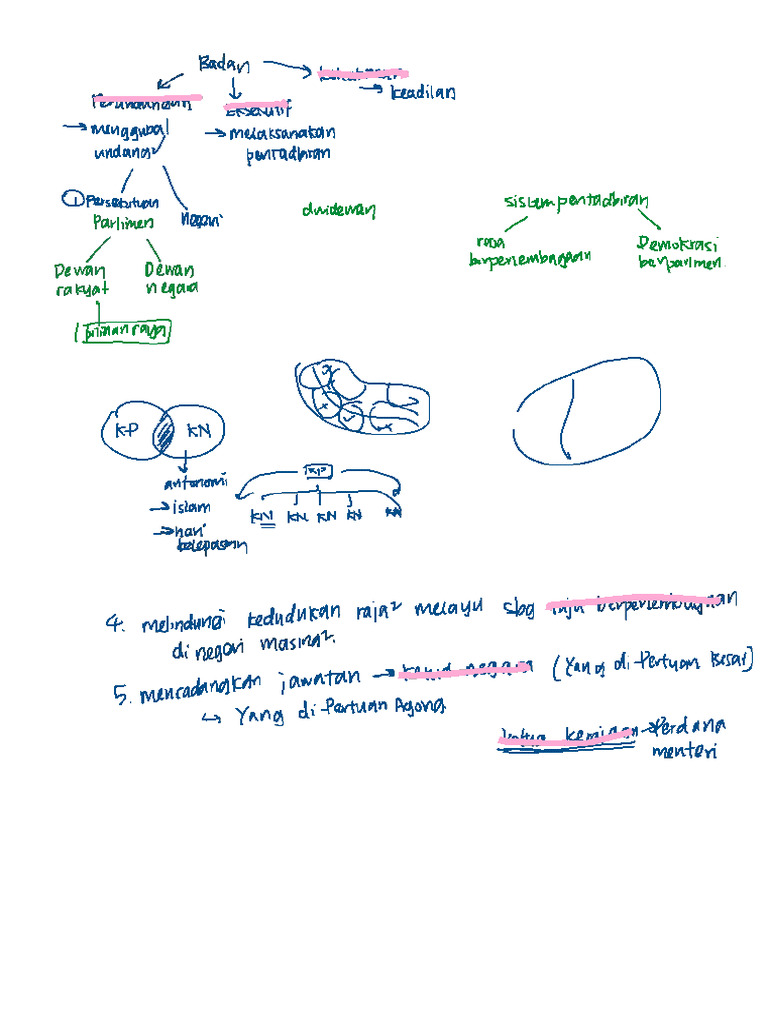 Badan
Perundangan
Eksekutif
kehakiman
→ keadilan
→ menggubal
undang²
→ melaksanakan
pentadbiran
① Persekutuan
Parlimen
negeri
Dewan
rakyat
Dewan
negara
pilihan raya
dwidewan
sistem pentadbiran
raja
berperlembagaan
Demokrasi
berparlimen
KP
KN
autonomi
→ islam
→ hari
kelepasan
KN KN KN KN KN
4. melindungi kedudukan raja² melayu sbg raja berperlembagaan
di negeri masing².
5. mencadangkan jawatan → ketua negara (Yang di-Pertuan Besar)
↳ Yang di-Pertuan Agong
ketua kerajaan → Perdana
menteri